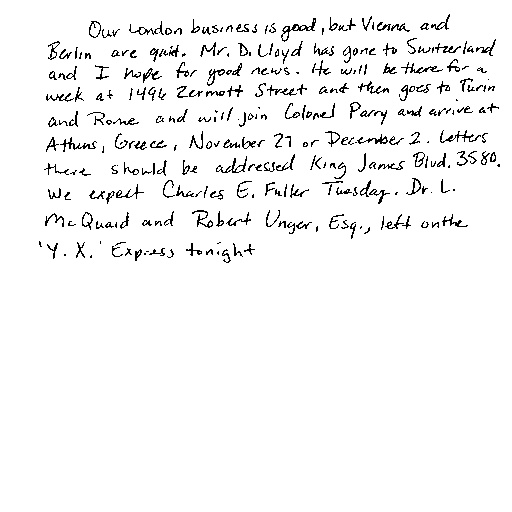 Our London business is good, but Vienna and
Berlin are quit. Mr. D. Lloyd has gone to Switzerland
and I hope for good news. He will be there for a
week at 1496 Zermott Street and then goes to Turin
and Rome and will join Colonel Parry and arrive at
Athens, Greece, November 27 or December 2. Letters
there should be addressed King James Blvd. 3580.
We expect Charles E. Fuller Tuesday. Dr. L.
McQuaid and Robert Unger, Esq., left on the
'Y. X.' Express tonight